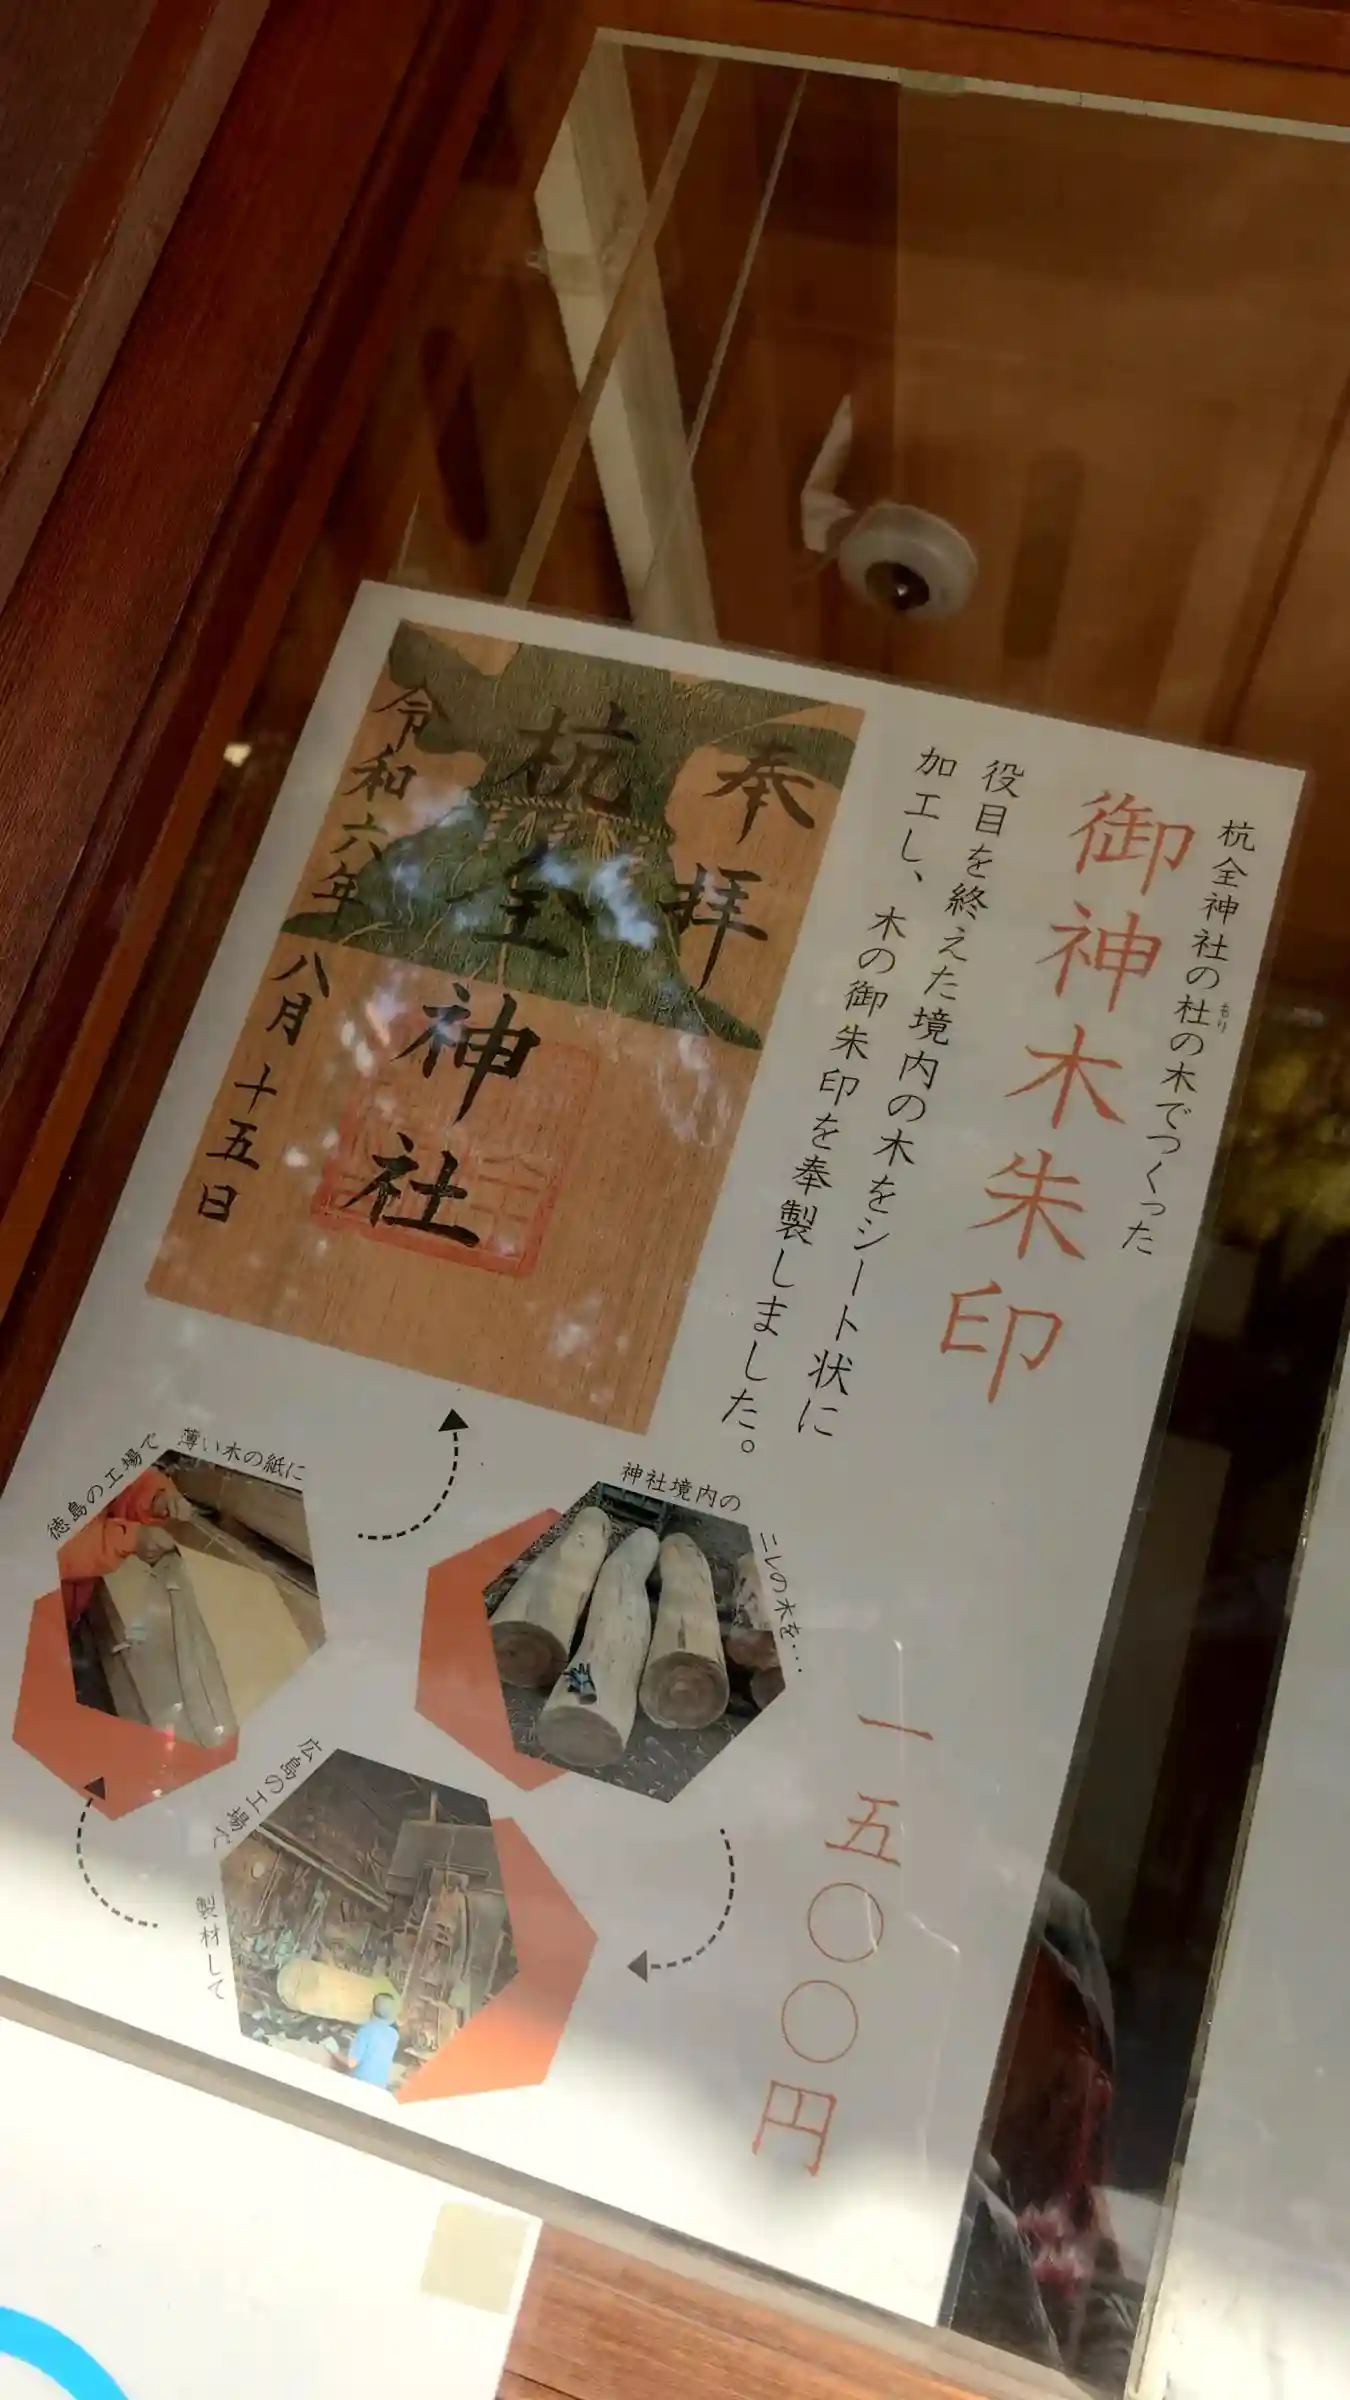 杭全神社の杜の木でつくった
もり
御神木朱印
役目を終えた境内の木をシート状に
加工し、木の御朱印を奉製しました。
奉拝
杭全神社
令和六年八月十五日
神社境内の
ニレの木を…
広島の工場で
製材して
徳島の工場で
薄い木の紙に
一五〇〇円